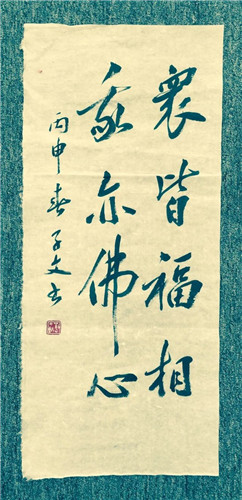 衆皆福相
我亦佛心
丙申春子文书